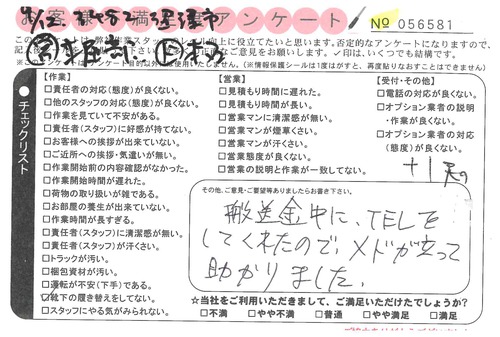 お客様の不満足アンケート № 056581
善に役立てたいと思います。否定的なアンケートになりますので、
お聞きください。✓印は、いくつでも結構です。
※このアンケートは目的以外に使用いたしません。(※情報保護シールは1度はがすと、再度貼りなおすことはできません)
チェックリスト
【作業】
□責任者の対応(態度)が良くない。
□他のスタッフの対応(態度)が良くない。
□作業を見ていて不安がある。
□責任者(スタッフ)に好感が持てない。
□お客様への挨拶が出来ていない。
□ご近所への挨拶・気遣いが無い。
□作業開始前の内容確認がなかった。
□作業開始時間が遅れた。
□荷物の取り扱いが雑である。
□お部屋の養生が出来ていない。
□作業時間が長すぎる。
□責任者(スタッフ)に清潔感が無い。
□責任者(スタッフ)が汗くさい。
□トラックが汚い。
□梱包資材が汚い。
□運転が不安(下手)である。
□靴下の履き替えをしてない。
□スタッフにやる気がみられない。
【営業】
□見積もり時間に遅れた。
□見積もり時間が長い。
□営業マンに清潔感が無い。
□営業マンが煙草くさい。
□営業マンが汗くさい。
□営業態度が良くない。
□営業の説明と作業が一致してない。
【受付・その他】
□電話の対応が良くない。
□オプション業者の説明
・作業が良くない。
□オプション業者の対応
(態度)が良くない。
その他、ご意見・ご要望等ありましたらお書き下さい。
搬送途中に、TELを
してくれたので、メドが立って
助かりました。
☆当社をご利用いただきまして、ご満足いただけたでしょうか?
□不満 □やや不満 □普通 □やや満足 □満足